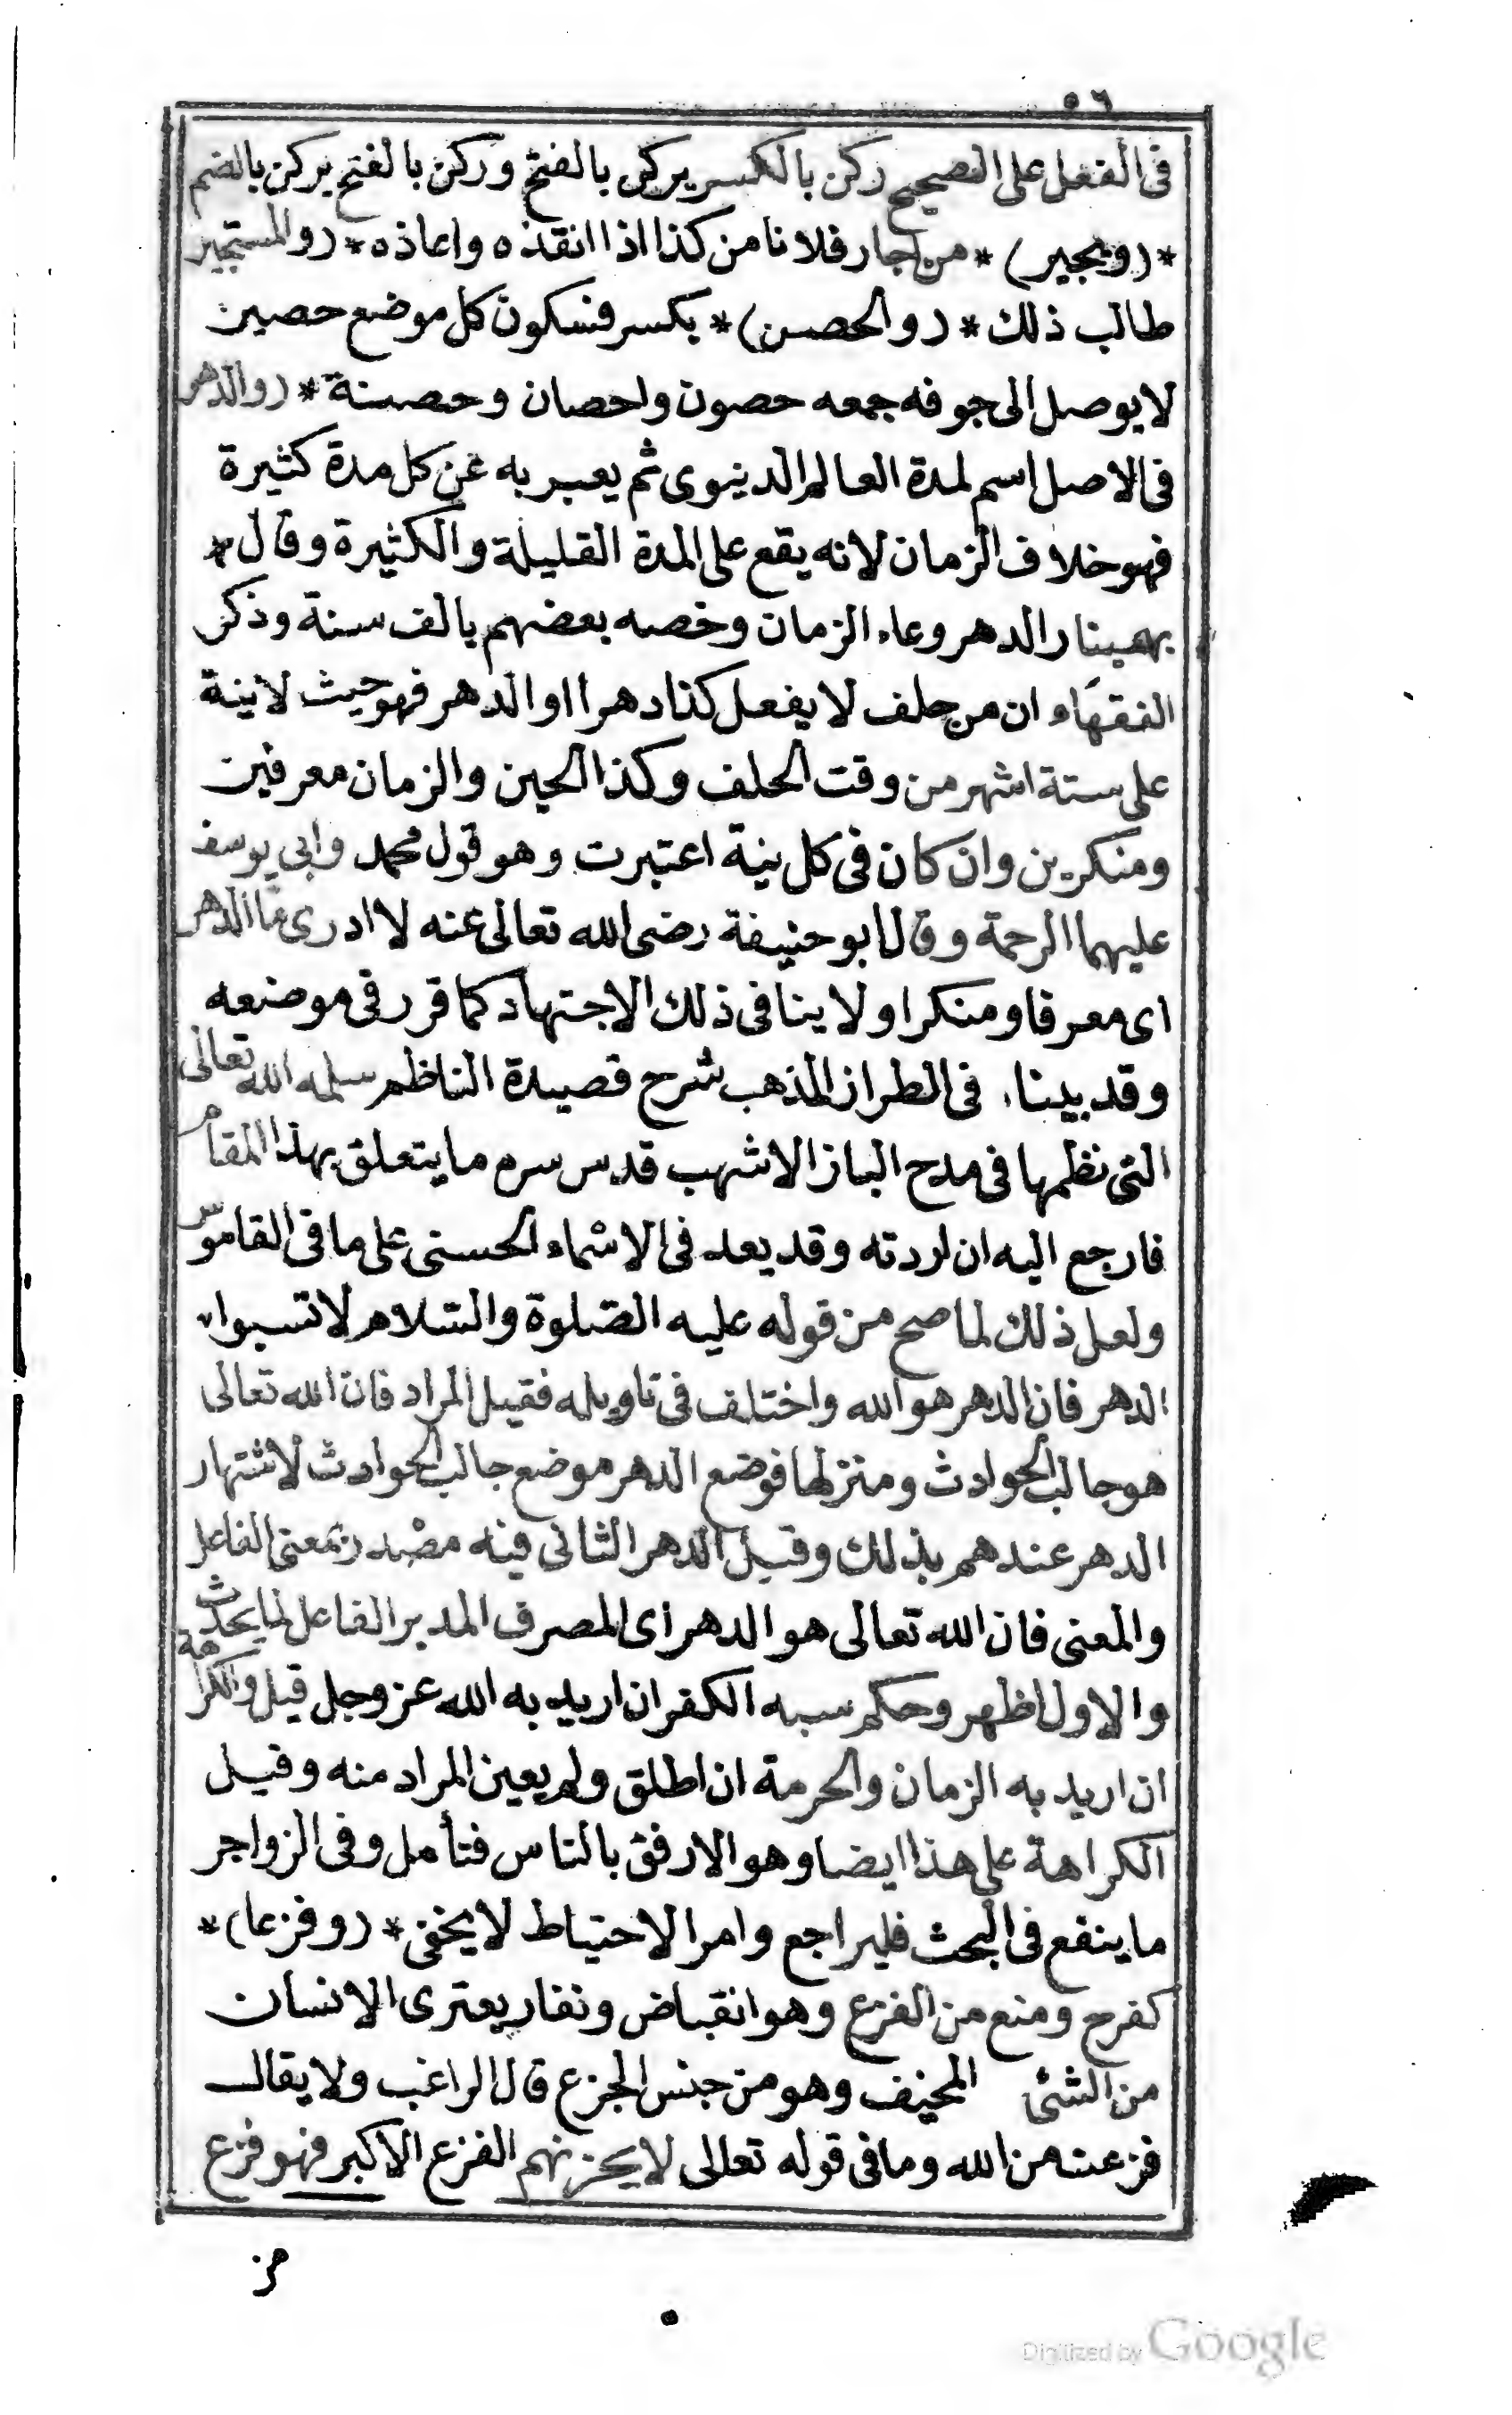 ٥٦
فى الفعل على الصحيح ركن بالكسر يركن بالفتح وركن بالفتح يركن بالضم
*(ومجير)* من اجار فلانا من كذا اذا انقذه واعاذه *(والمستجير
طالب ذلك *(والحصن)* بكسر فسكون كل موضع حصين
لا يوصل الى جوفه جمعه حصون واحصان وحصنة *(والدهر
فى الاصل اسم لمدة العالم الدينوى ثم يعبر به عن كل مدة كثيرة
فهو خلاف الزمان لانه يقع على المدة القليلة والكثيرة وقال *
بهمينار الدهر وعاء الزمان وخصه بعضهم بالف سنة وذكر
الفقهاء ان من حلف لا يفعل كذا دهرا او الدهر فهو حيث لا نية
على ستة اشهر من وقت الحلف وكذا الحين والزمان معرفين
ومنكرين وان كان فى كل نية اعتبرت وهو قول محمد وابى يوسف
عليهما الرحمة وقال ابو حنيفة رضى الله تعالى عنه لا ادرى ما الدهر
اى معرفا ومنكرا ولا ينافى ذلك الاجتهاد كما قرر فى موضعه
وقد بينا، فى الطراز المذهب شرح قصيدة الناظم سلمه الله تعالى
التى نظمها فى مدح الباز الاشهب قدس سره ما يتعلق بهذا المقام
فارجع اليه ان اردته وقد يعد فى الاسماء الحسنى على ما فى القاموس
ولعل ذلك لما صح من قوله عليه الصلوة والسلام لا تسبوا
الدهر فان الدهر هو الله واختلف فى تاويله فقيل المراد فان الله تعالى
هو جالب الحوادث ومنزلها فوضع الدهر موضع جالب الحوادث لاشتهار
الدهر عندهم بذلك وقيل الدهر الثانى فيه مصدر بمعنى الفاعل
والمعنى فان الله تعالى هو الدهر أى المصرف المدبر الفاعل لما يحدث
والاول اظهر وحكم سبه الكفر ان اريد به الله عز وجل قيل والكراهة
ان اريد به الزمان والحرمة ان اطلق ولم يعين المراد منه وقيل
الكراهة على هذا ايضا وهو الارفق بالناس فتأمل وفى الزواجر
ما ينفع فى البحث فليراجع وامر الاحتياط لا يخفى *(وفزعا)*
كفرح ومنع من الفزع وهو انقباض ونفار يعترى الانسان
من الشئ المخيف وهو من جنس الجزع قال الراغب ولا يقال
فزعت من الله وما فى قوله تعالى لا يحزنهم الفزع الاكبر فهو فزع
من
Digitized by Google